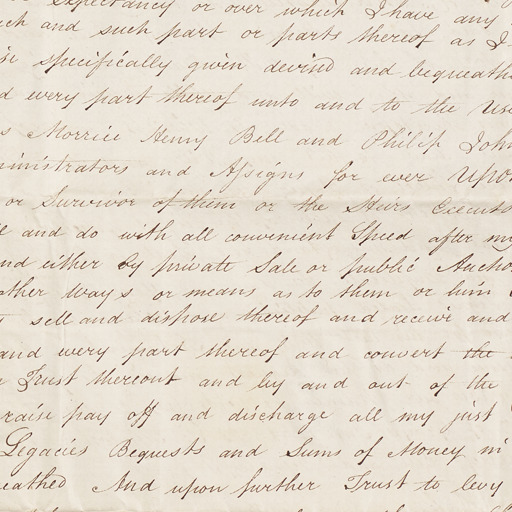 expectancy or over which I have any
such and such part or parts thereof as I
specifically given devised and bequeath
every part thereof unto and to the use
Morrice Henry Bell and Philip John
ministrators and Assigns for ever Upon
or Survivor of them or the Heirs Executo
and do with all convenient Speed after my
and either by private Sale or public Auctio
other ways or means as to them or him
sell and dispose thereof and receive and
and every part thereof and convert the
Trust thereout and by and out of the
raise pay off and discharge all my just
Legacies Bequests and Sums of Money in
eathed And upon further Trust to levy